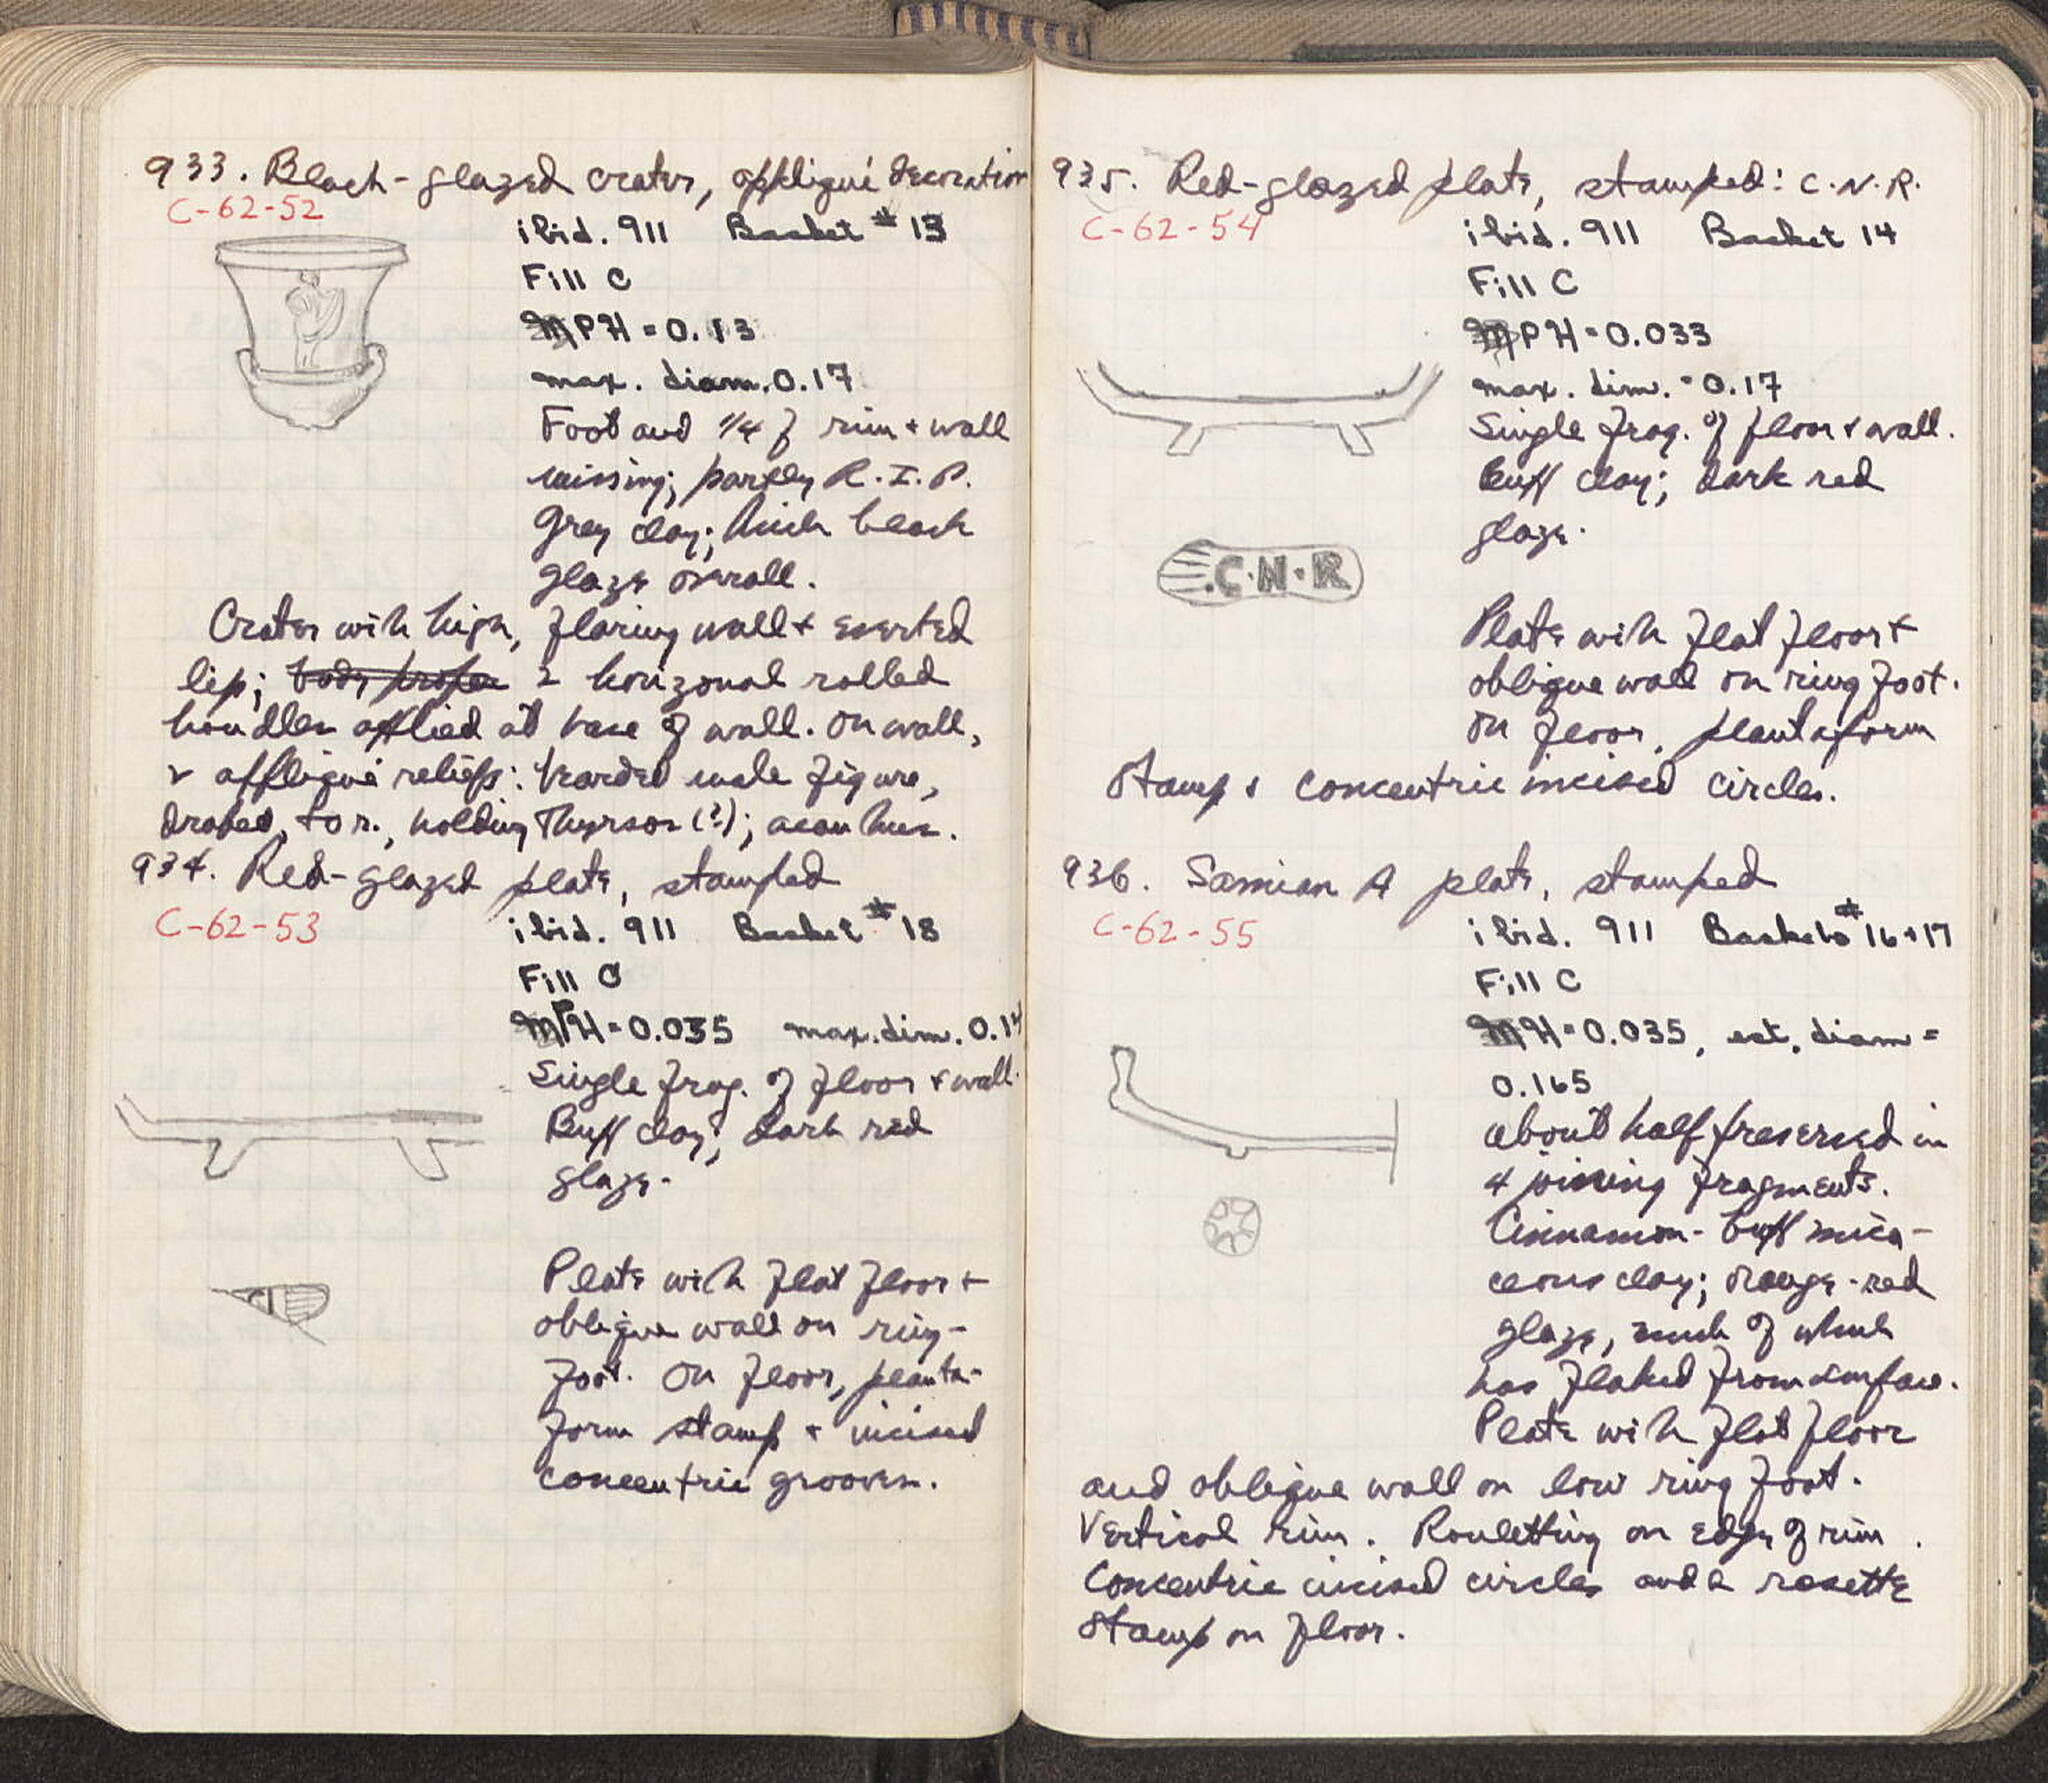 933. Black-glazed crater, appliqué decoration
C-62-52
ibid. 911 Basket #13
Fill C
PH = 0.13
max. diam. 0.17
Foot and 1/4 of rim + wall
missing; partly R.I.P.
Grey clay; thick black
glaze overall.
Crater with high, flaring wall + everted
lip; body proper 2 horizonal rolled
handles applied at base of wall. On wall,
2 appliqué reliefs: bearded male figure,
draped, to r., holding Thyrsos (?); acanthus.
934. Red-glazed plate, stamped
C-62-53
ibid. 911 Basket #18
Fill C
PH = 0.035 max. dim. 0.14
Single frag. of floor + wall.
Buff clay; dark red
glaze.
Plate with flat floor +
oblique wall on ring-
foot. On floor, planta-
form stamp + incised
concentric grooves.
935. Red-glazed plate, stamped: C.N.R.
C-62-54
ibid. 911 Basket 14
Fill C
PH = 0.033
max. dim. = 0.17
Single frag. of floor + wall.
Buff clay; dark red
glaze.
.C.N.R
Plate with flat floor +
oblique wall on ring foot.
On floor, plantaform
stamp + concentric incised circles.
936. Samian A plate, stamped
C-62-55
ibid. 911 Baskets #16+17
Fill C
H = 0.035, est. diam =
0.165
About half preserved in
4 joining fragments.
Cinnamon-buff mica-
ceous clay; orange-red
glaze, much of which
has flaked from surface.
Plate with flat floor
and oblique wall on low ring foot.
Vertical rim. Rouletting on edge of rim.
Concentric incised circles and a rosette
stamp on floor.